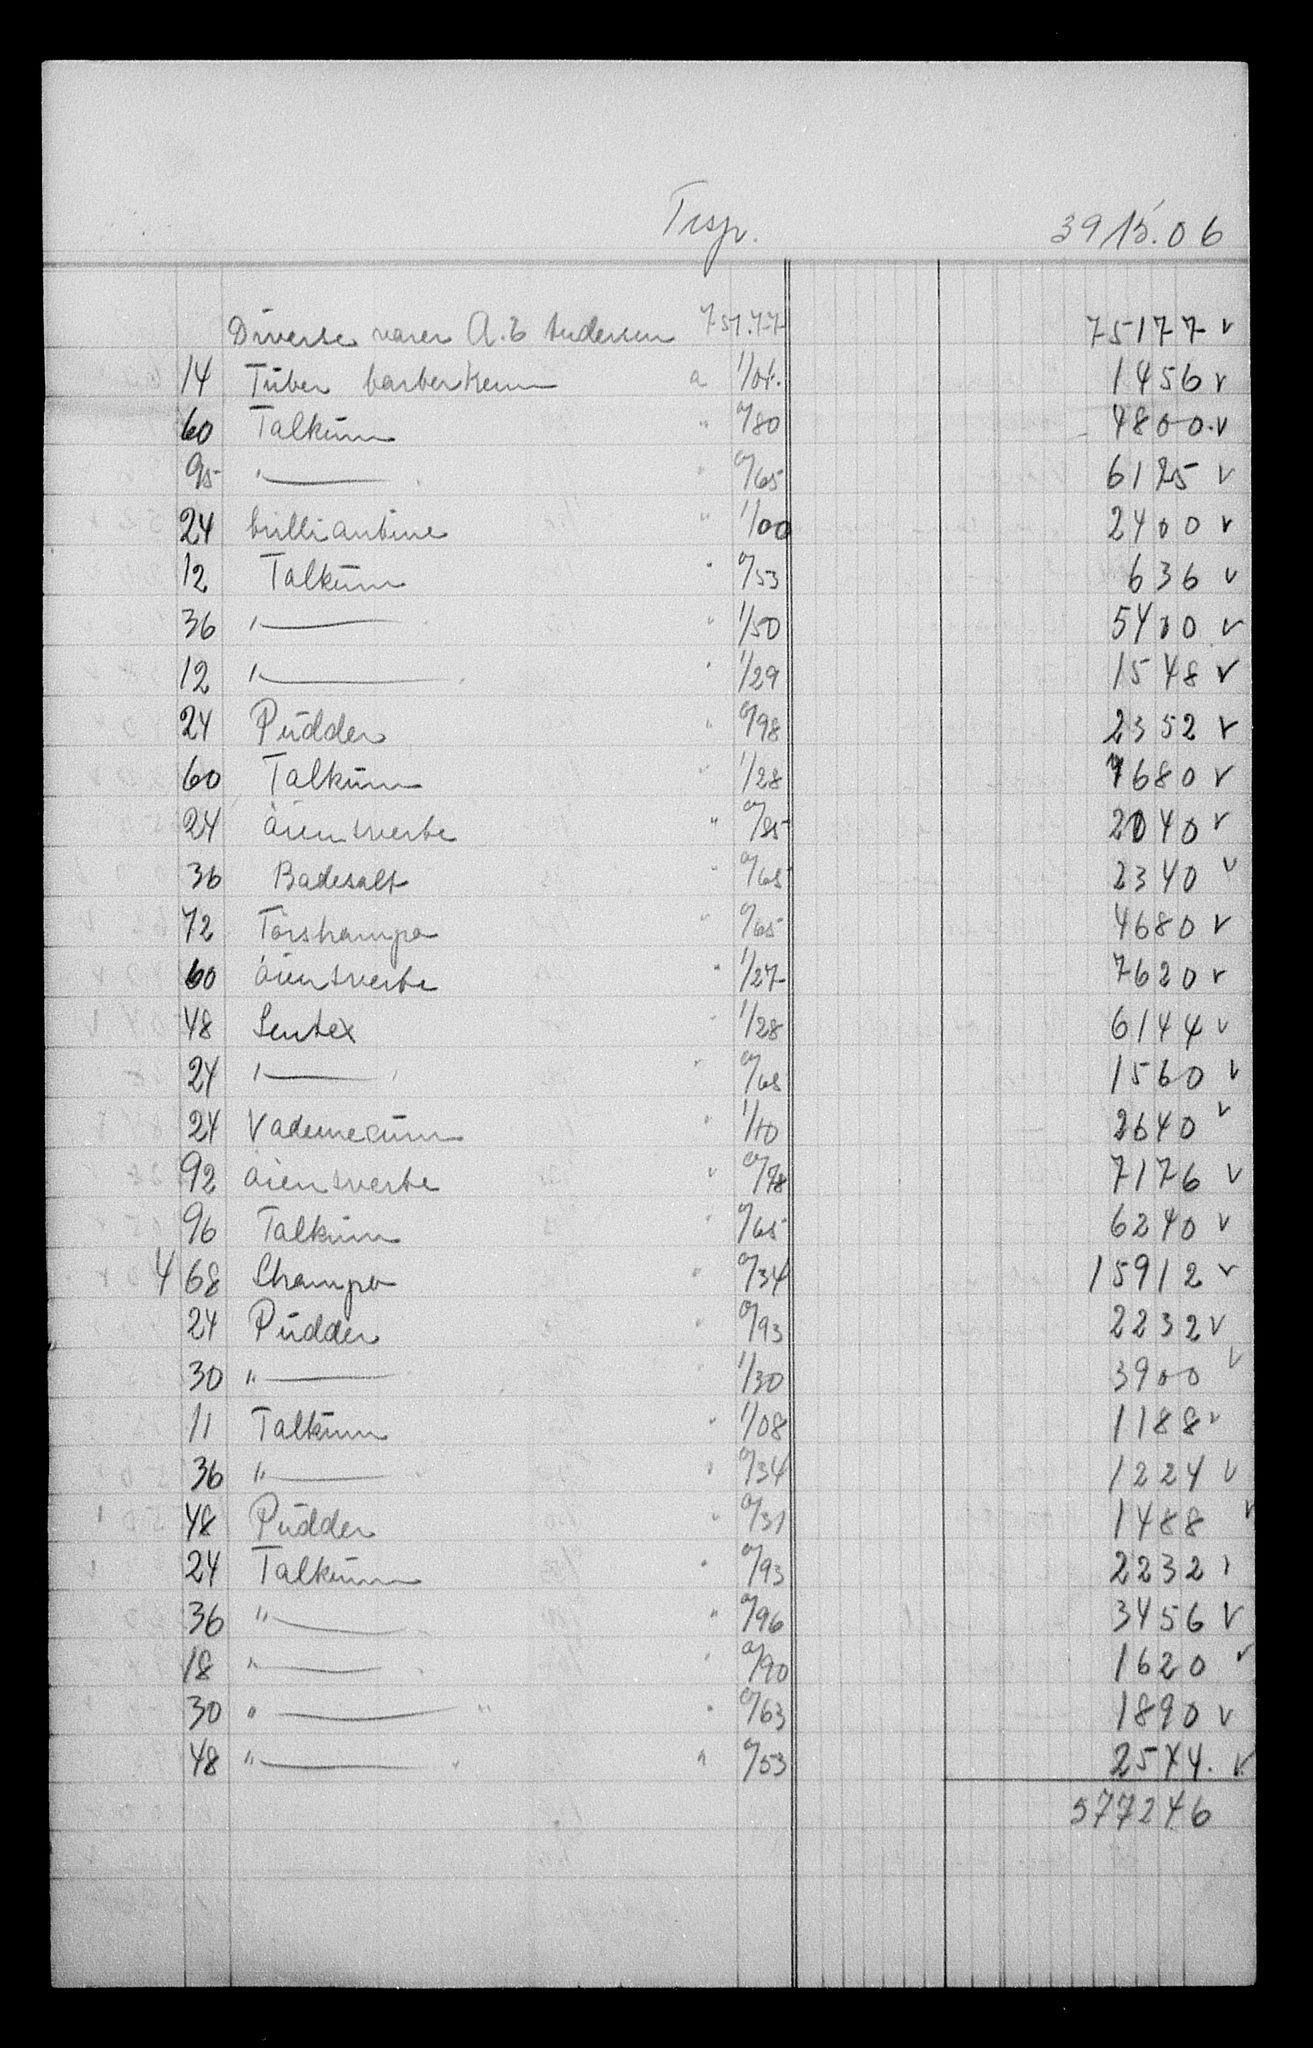 Trsp. 3915.06
Diverse varer A. E Andersen 751.77 75177 v
14 Tuber barberkrem a 1/04. 1456 v
60 Talkum " 0/80 4800. v
95 " — " 0/65 6125 v
24 brilliantine " 1/00 2400 v
12 Talkum " 0/53 636 v
36 " — " 1/50 5400 v
12 " — " 1/29 1548 v
24 Pudder " 0/98 2352 v
60 Talkum " 1/28 7680 v
24 öiensverte " 0/85 2040 v
36 Badesalt " 0/65 2340 v
72 Törshampo " 0/65 4680 v
60 öiensverte " 1/27 7620 v
48 Sentex " 1/28 6144 v
24 " — " 0/65 1560 v
24 Vademecum " 1/10 2640 v
92 öiensverte " 0/78 7176 v
96 Talkum " 0/65 6240 v
468 Champo " 0/34 15912 v
24 Pudder " 0/93 2232 v
30 " — " 1/30 3900 v
11 Talkum " 1/08 1188 v
36 " — " 0/34 1224 v
48 Pudder " 0/31 1488 v
24 Talkum " 0/93 2232 v
36 " — " 0/96 3456 v
18 " — " 0/90 1620 v
30 " — " " 0/63 1890 v
48 " — " " 0/53 2544. v
577246